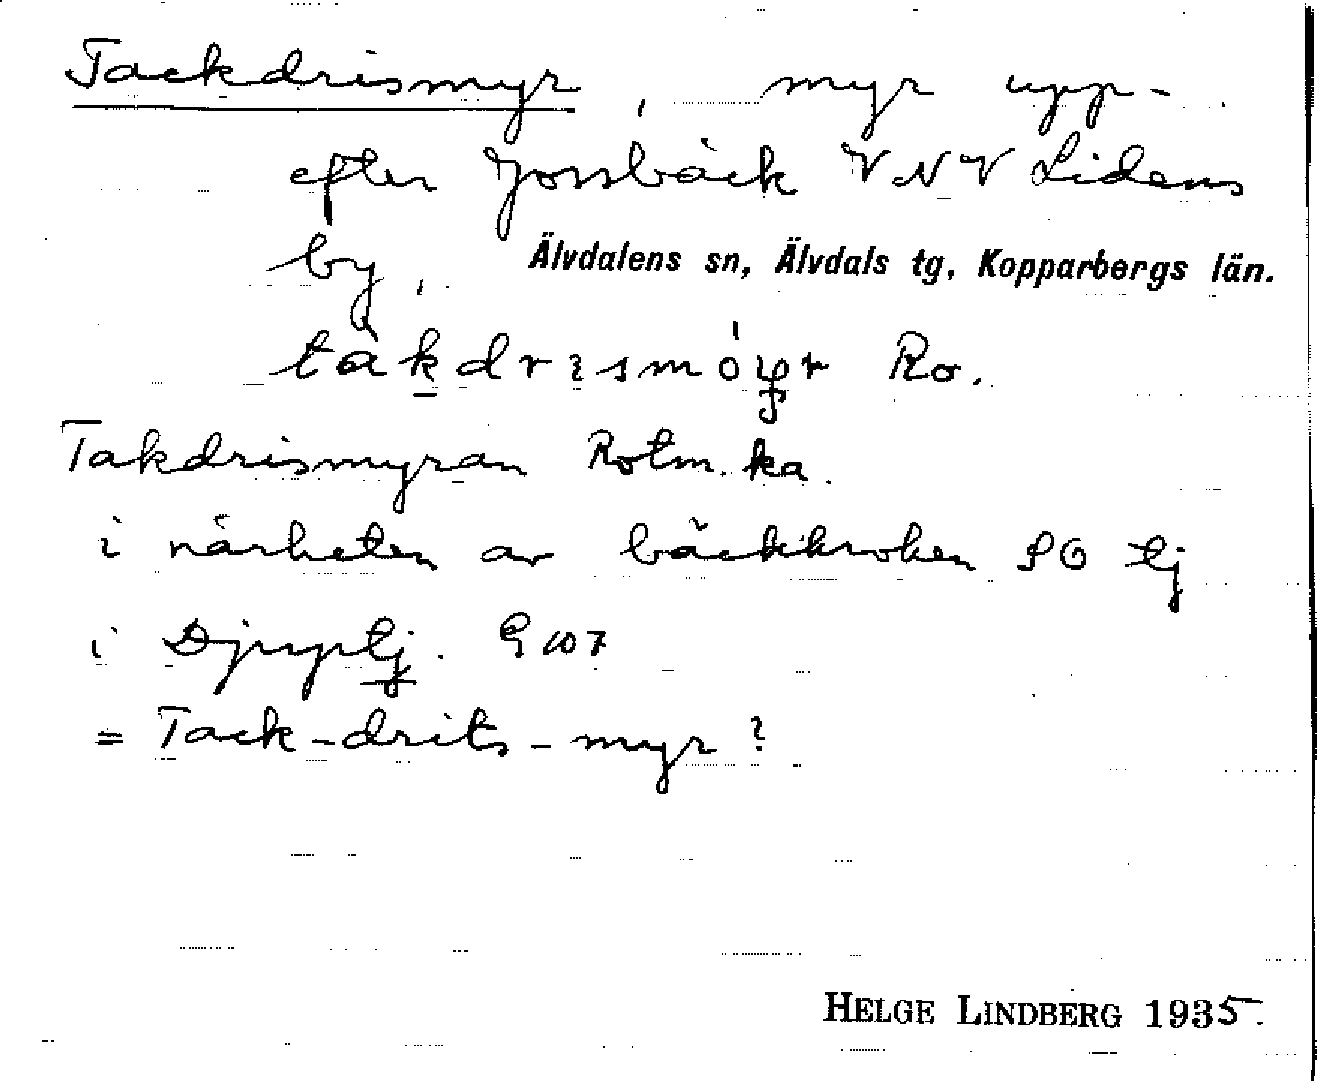 Tackdrismyr, myr upp-
efter Jonsbäck VNV Lidens
by, Älvdalens sn, Älvdals tg, Kopparbergs län.
Ro.
Takdrismyran Rotm. ka.
i närheten av bäckkroken SO tj
i Djuptj. G 107
= Tack-drits-myr?
HELGE LINDBERG 1935.